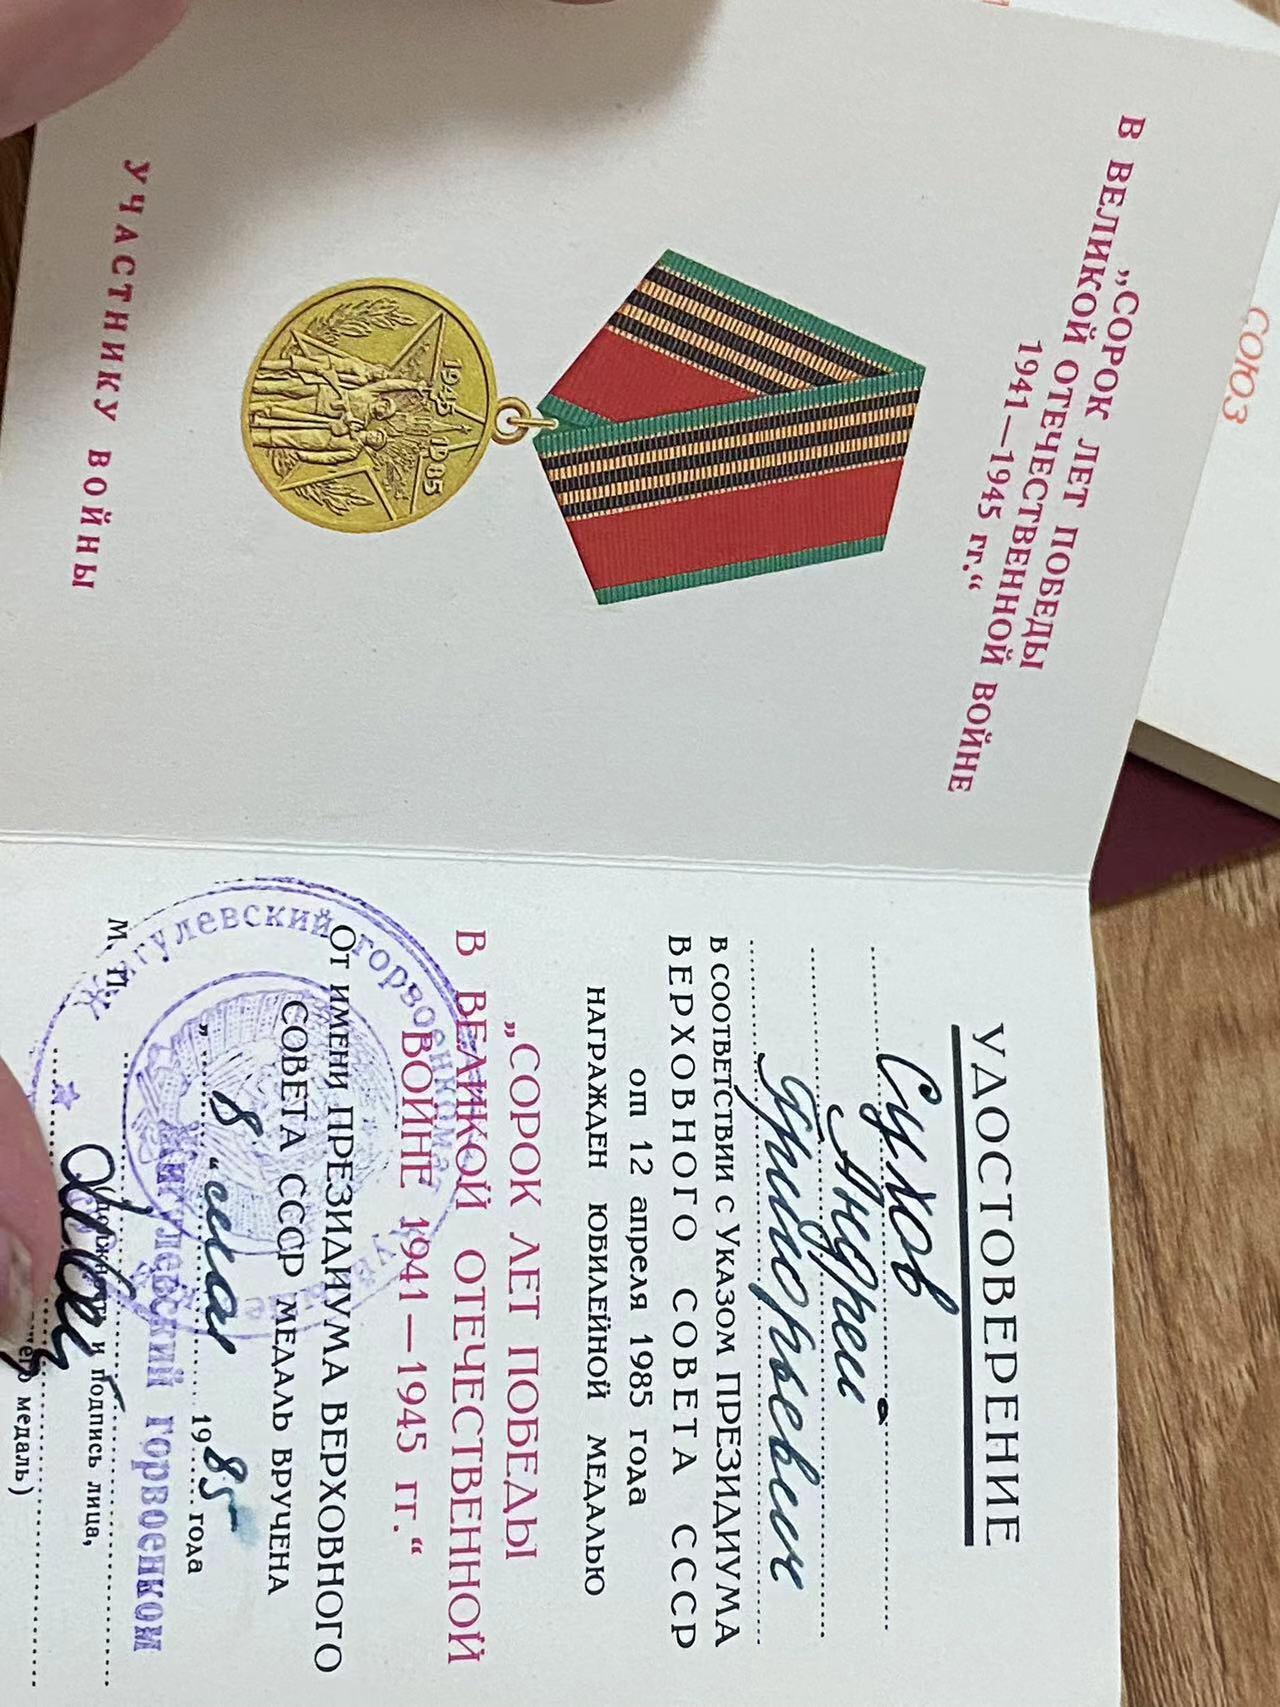 СОЮЗ
„СОРОК ЛЕТ ПОБЕДЫ
В ВЕЛИКОЙ ОТЕЧЕСТВЕННОЙ ВОЙНЕ
1941—1945 гг.“
1945 1985
УЧАСТНИКУ ВОЙНЫ
УДОСТОВЕРЕНИЕ
Сухов
Андрей
Григорьевич
В СООТВЕТСТВИИ С УКАЗОМ ПРЕЗИДИУМА
ВЕРХОВНОГО СОВЕТА СССР
от 12 апреля 1985 года
НАГРАЖДЕН ЮБИЛЕЙНОЙ МЕДАЛЬЮ
„СОРОК ЛЕТ ПОБЕДЫ
В ВЕЛИКОЙ ОТЕЧЕСТВЕННОЙ
ВОЙНЕ 1941—1945 гг.“
ОТ ИМЕНИ ПРЕЗИДИУМА ВЕРХОВНОГО
СОВЕТА СССР МЕДАЛЬ ВРУЧЕНА
„ 8 “ мая 1985 года
Жигулевский горвоенком
М. П.
и подпись лица,
медаль)